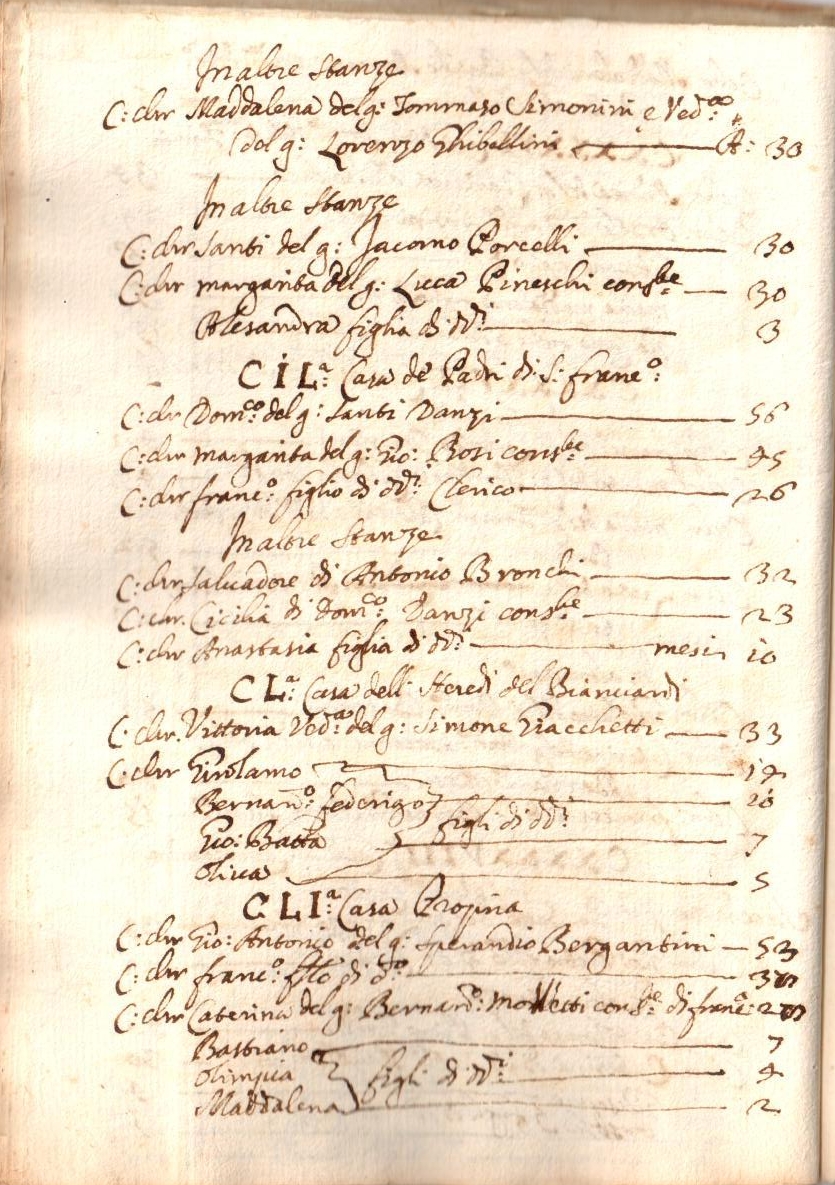 In altre Stanze
C: chr Maddalena del g: Tommaso Simonini e Ved:a
del g: Lorenzo Ghibellini A: 30
In altre Stanze
C: chr Santi del g: Jacomo Porcelli 30
C: chr margarita del g: Luca Pineschi cons:te 30
Alesandra figlia di dd:i 3
CIL:a Casa de Padri di S: Franc:o
C: chr Dom:co del g: Santi Danzi 56
C: chr margarita del g: Gio: Bosi cons:te 45
C: chr franc:o figlio di dd:i Clerico 26
In altre Stanze
C: chr Salvadore di Antonio Bronchi 32
C: chr Cicilia di Dom:co Danzi cons:te 23
C: chr Anastasia figlia di dd:i mesi 10
CL:a Casa dell Heredi del Bianciardi
C: chr Vittoria Ved:a del g: Simone Giacchetti 33
C: chr Girolamo 14
Bernard:o federigo 10
Gio: Batta figli di dd:i 7
Oliva 5
CLI:a Casa Propina
C: chr Gio: Antonio del g: Sperandio Bergantini 53
C: chr franc:o f:lo di d:o
C: chr Caterina del g: Bernard:o cons:te di franc:o
Bastiano 7
Olimpia figli di dd:i 4
Maddalena 2